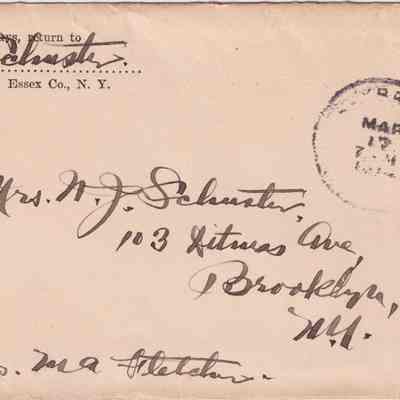 ays, return to
Schuster.
Essex Co., N. Y.
MAR
17
Mrs. W. J. Schuster,
103 Ditmas Ave,
Brooklyn,
N.Y.
M A Fletcher.